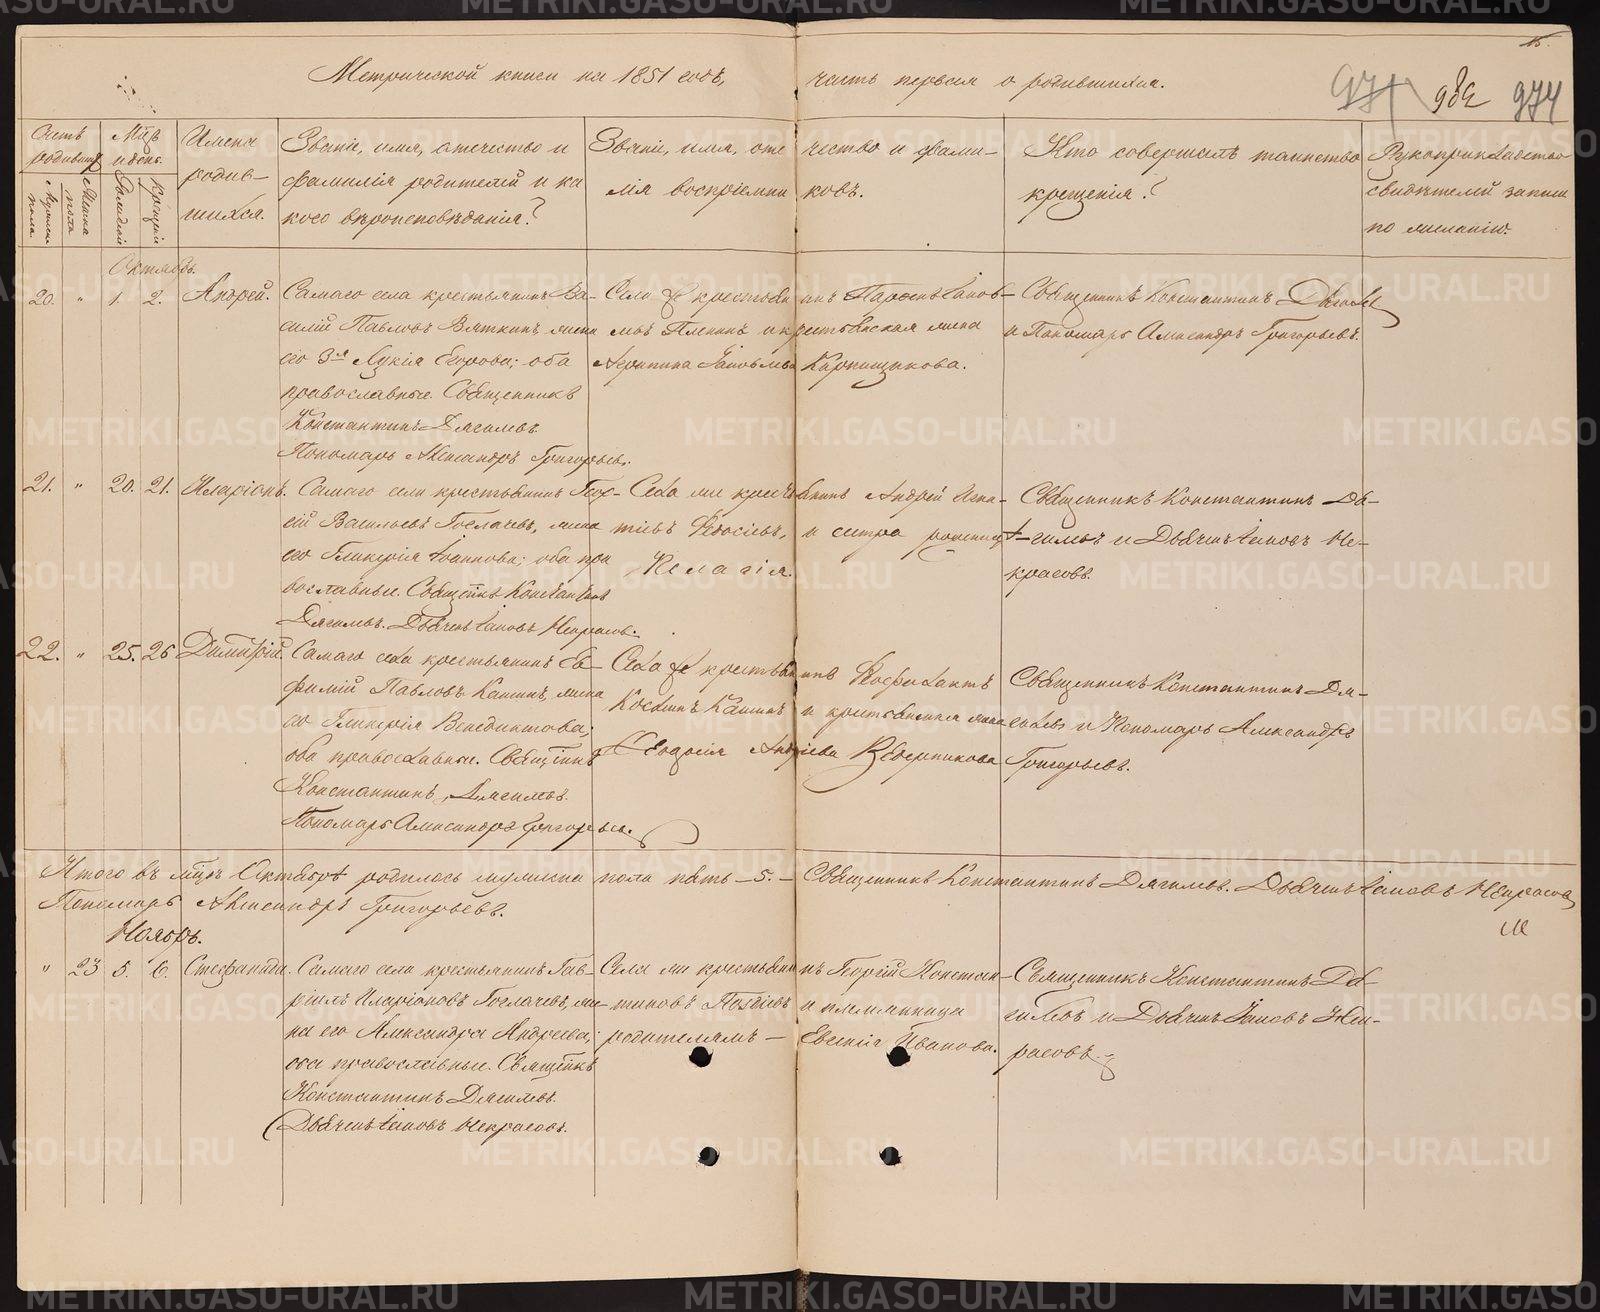 Метрической книги на 1851 годъ, часть первая о родившихся.
982 974
Счетъ родившихся
Мужеска пола.
Женска пола
Мѣсяцъ и день.
Рожденія
Крещенія
Имена родив-
шихся.
Званіе, имя, отечество и
фамилія родителей и ка
кого вѣроисповѣданія?
Званіе, имя, оте чество и фами-
лія воспріемни ковъ.
Кто совершалъ таинство
крещенія?
Рукоприкладство
свидѣтелей записи
по желанію.
Октябрь.
20. " 1. 2. Андрей.
Самаго села крестьянинъ Ва-
силій Павловъ Вяткинъ, жена
его Лукія Егорова; оба
православные. Священникъ
Константинъ Дягилевъ.
Пономарь Александръ Григорьевъ.
Села же крестьянинъ
и крестьянская жена
Агрипина
Священникъ Константинъ
и Пономарь Александръ Григорьевъ.
21. " 20. 21. Иларіонъ.
Самаго села крестьянинъ Геор-
гій Васильевъ Гоглачевъ, жена
его Гликерія Іоаннова; оба пра
вославные. Священникъ Константинъ
Дягилевъ. Дьячекъ Іаковъ Некрасовъ.
Села же крестьянинъ Андрей Игна-
тіевъ Ѳедосіевъ, и сестра роженицы
Пелагія.
Священникъ Константинъ Дя-
гилевъ и Дьячекъ Іаковъ Не-
красовъ.
22. " 25. 26 Димитрій.
Самаго села крестьянинъ Ев-
фимій Павловъ Кашинъ, жена
его Гликерія Венедиктова;
оба православные. Священникъ
Константинъ Дягилевъ.
Пономарь Александръ Григорьевъ.
Села же крестьянинъ Ѳеофилактъ
Кашинъ и крестьянская жена
Евдокія Андреева Ведерникова
Священникъ Константинъ Дя-
гилевъ и Пономарь Александръ
Григорьевъ.
Итого въ мѣсяцѣ Октябрѣ родилось мужска пола пять – 5. – Священникъ Константинъ Дягилевъ. Дьячекъ Іаковъ Некрасовъ
Пономарь Александръ Григорьевъ.
Ноябрь.
" 23 5. 6. Стефанида.
Самаго села крестьянинъ Гав-
ріилъ Иларіоновъ Гоглачевъ, же-
на его Александра Андреева;
оба православные. Священникъ
Константинъ Дягилевъ.
Дьячекъ Іаковъ Некрасовъ.
Села же крестьянинъ Георгій Констан-
тиновъ и племянница
родителямъ – Евгенія Иванова.
Священникъ Константинъ Дя-
гилевъ и Дьячекъ Іаковъ Нек-
расовъ.
METRIKI.GASO-URAL.RU